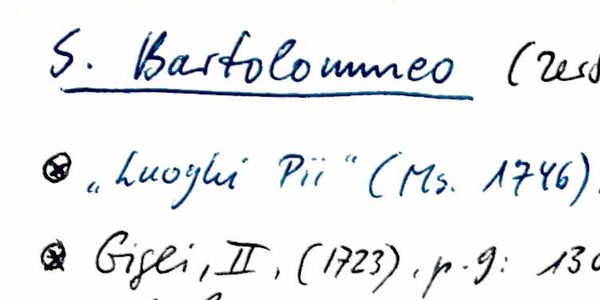 S. Bartolommeo (Zers
⊗ „Luoghi Pii“ (Ms. 1746).
⊗ Gigli, II, (1723), p. 9: 13